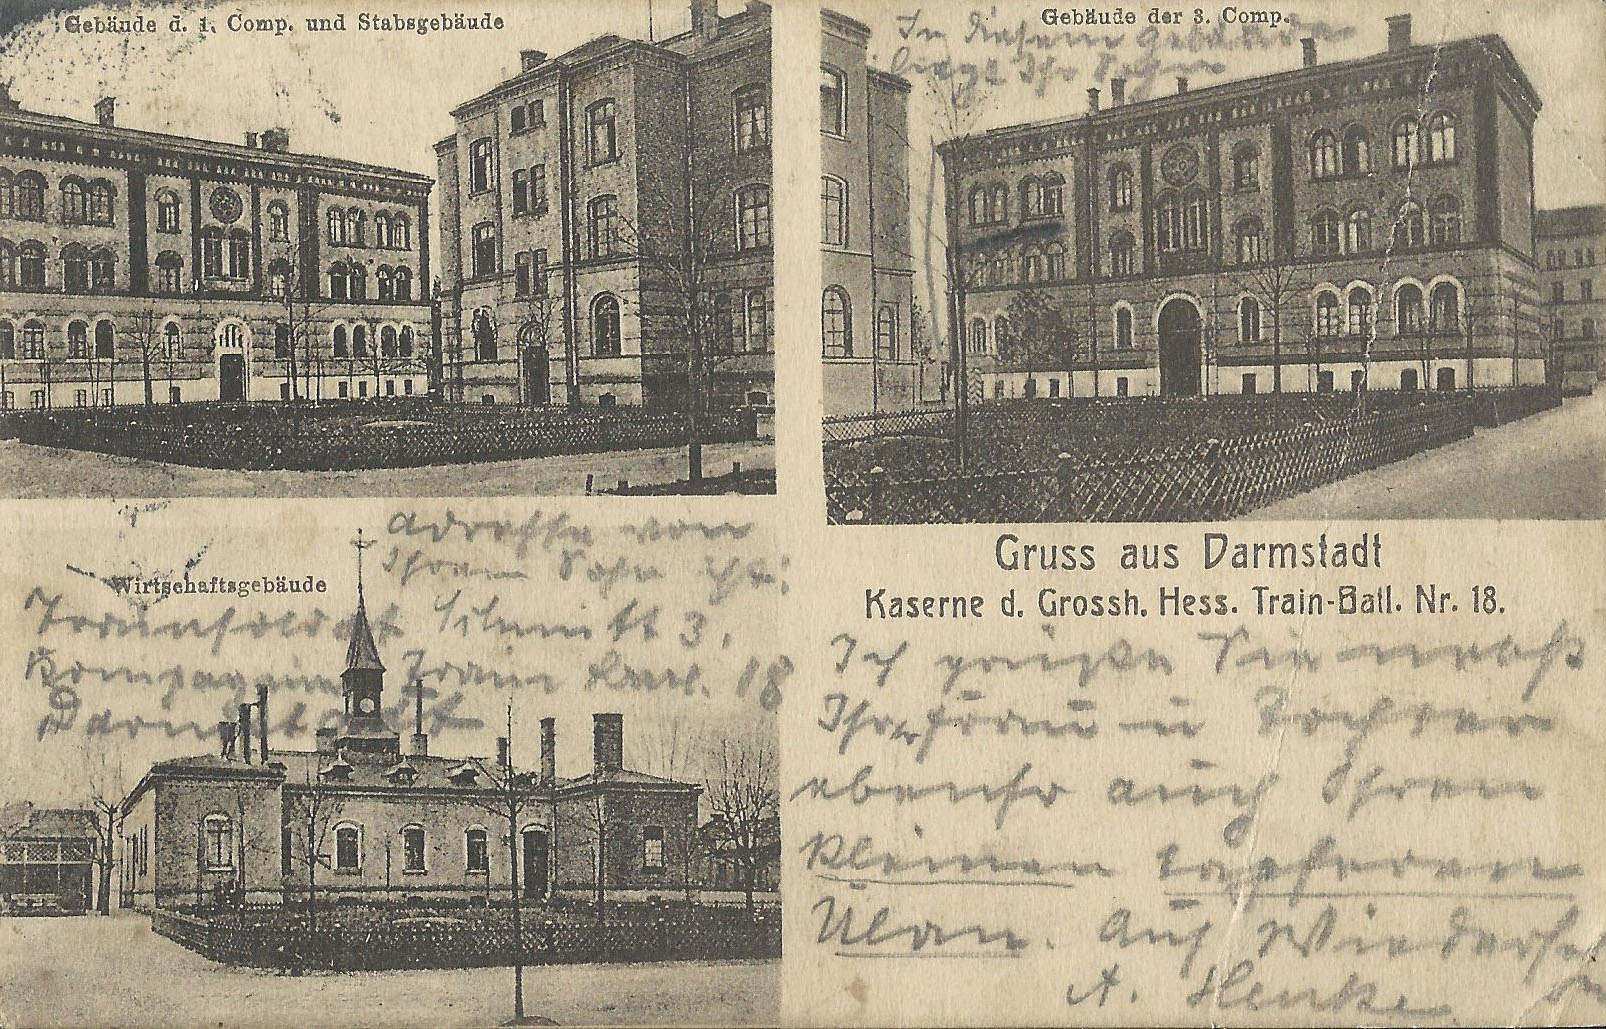 Gebäude d. 1. Comp. und Stabsgebäude
Gebäude der 3. Comp.
In diesem Gebäude
liegt Ihr Sohn
Adresse von
Ihrem Sohn ist:
Wirtschaftsgebäude
Trainsoldat Schmitt 3.
Kompagnie Train 18
Darmstadt
Gruss aus Darmstadt
Kaserne d. Grossh. Hess. Train-Batl. Nr. 18.
Ich grüße Sie nebst
Ihrer Frau u Tochter
ebenso auch Ihren
kleinen tapferen
Ulan. Auf Wiedersehen
A. Henke